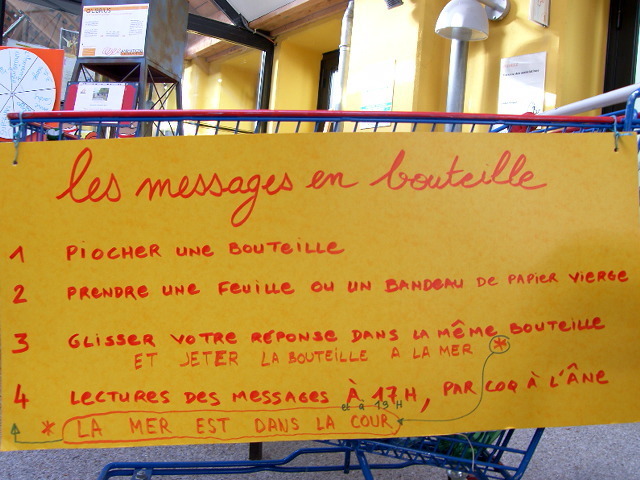 les messages en bouteille
1 PIOCHER UNE BOUTEILLE
2 PRENDRE UNE FEUILLE OU UN BANDEAU DE PAPIER VIERGE
3 GLISSER VOTRE RÉPONSE DANS LA MÊME BOUTEILLE
ET JETER LA BOUTEILLE A LA MER *
4 LECTURES DES MESSAGES À 17H, PAR COQ À L'ÂNE
et à 19H
* LA MER EST DANS LA COUR